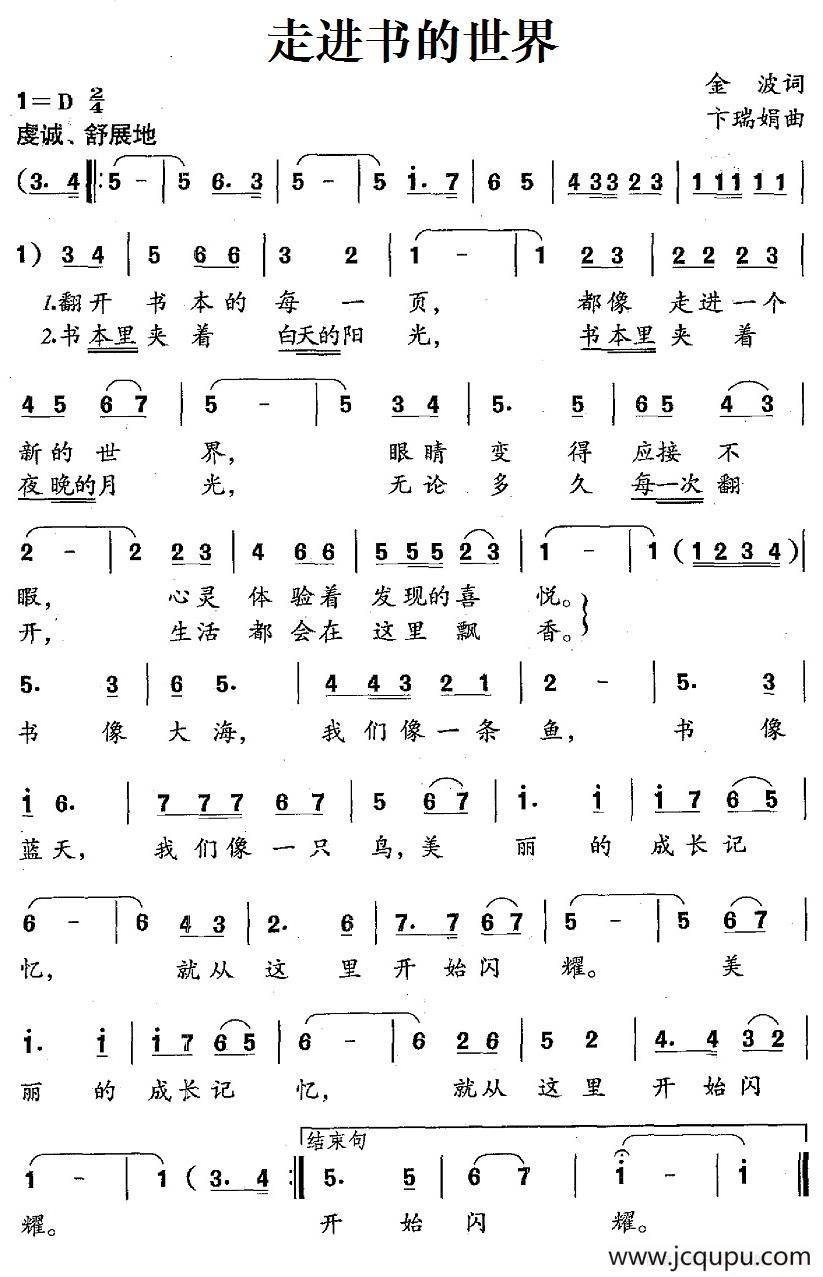 走进书的世界
金 波词
1=D 2/4
卞瑞娟曲
虔诚、舒展地
(3. 4 ‖: 5 - | 5 6. 3 | 5 - | 5 i. 7 | 6 5 | 4 33 2 3 | 1 11 1 1 |
1) 3 4 | 5 6 6 | 3 2 | 1 - | 1 2 3 | 2 2 2 3 |
1.翻开 书 本的 每 一 页, 都像 走进一个
2.书本里夹 着 白天的阳 光, 书本里夹 着
4 5 6 7 | 5 - | 5 3 4 | 5. 5 | 6 5 4 3 |
新的 世 界, 眼睛 变 得 应接 不
夜晚的月 光, 无论 多 久 每一次 翻
2 - | 2 2 3 | 4 6 6 | 5 5 5 2 3 | 1 - | 1 (1 2 3 4) |
暇, 心灵 体 验着 发现的喜 悦。
开, 生活 都 会在 这里 飘 香。
5. 3 | 6 5. | 4 4 3 2 1 | 2 - | 5. 3 |
书 像 大 海, 我 们 像 一 条 鱼, 书 像
i 6. | 7 7 7 6 7 | 5 6 7 | i. i | i 7 6 5 |
蓝 天, 我 们 像 一 只 鸟, 美 丽 的 成长 记
6 - | 6 4 3 | 2. 6 | 7. 7 6 7 | 5 - | 5 6 7 |
忆, 就从 这 里 开 始 闪 耀。 美
i. i | i 7 6 5 | 6 - | 6 2 6 | 5 2 | 4. 4 3 2 |
丽 的 成长 记 忆, 就从 这 里 开 始 闪
结束句
1 - | 1 (3. 4 :‖ 5. 5 | 6 7 | i - | i ‖
耀。 开 始 闪 耀。
www.jcqupu.com